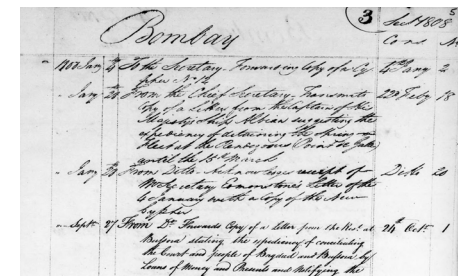 3
Sect 1808
5
Bombay
Cons No
1808 Jany 4 To the Secretary. Forwarding Copy of a Cy
pher No 12
4th Jany 2
" Jany 26 From the Chief Secretary. Transmits
22d Feby 18
Copy of a Letter from the Captain of His
Majesty's Ship Albion suggesting the
expediency of detaining the Missing
Fleet at the Rendezvous (Point de Galle)
until the 15th March
" Jany 29 From Ditto. Acknowledges receipt of
Ditto 20
Mr Secretary Edmonstone's Letter of the
4 January with a Copy of the New
Cypher
" Septr 27 From Do Forwards Copy of a letter from the Resdt at
24th Octr 1
Bussora stating the expediency of conciliating
the Court and people of Bagdad and Bussora by
Loans of Money and Presents and Notifying the